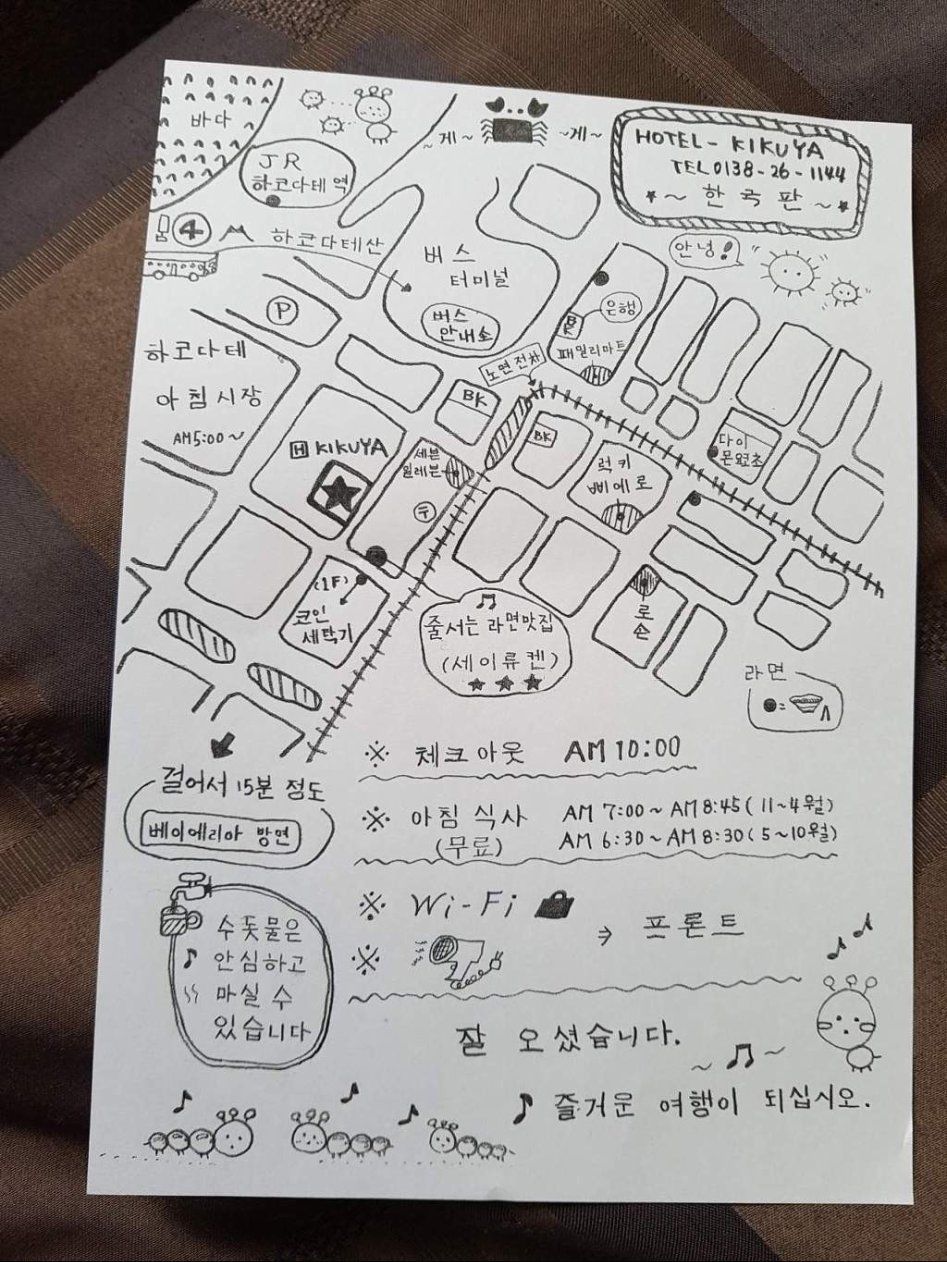 바다
JR
하코다테역
~게~
~게~
HOTEL - KIKUYA
TEL 0138-26-1144
★~ 한국판 ~★
안녕!
4
하코다테산
버스
터미널
버스
안내소
은행
BK
패밀리마트
노면전차
P
하코다테
아침시장
AM5:00~
BK
H KIKUYA
세븐
일레븐
〒
BK
럭키
삐에로
다이
몬요코쵸
(1F)
코인
세탁기
줄서는 라면맛집
(세이류켄)
★ ★ ★
로손
라면
● =
걸어서 15분 정도
베이에리아 방면
※ 체크아웃 AM 10:00
※ 아침 식사 AM 7:00~AM 8:45(11~4월)
(무료) AM 6:30~AM 8:30(5~10월)
※ Wi-Fi
※ → 프론트
수돗물은
안심하고
마실 수
있습니다
잘 오셨습니다.
즐거운 여행이 되십시오.